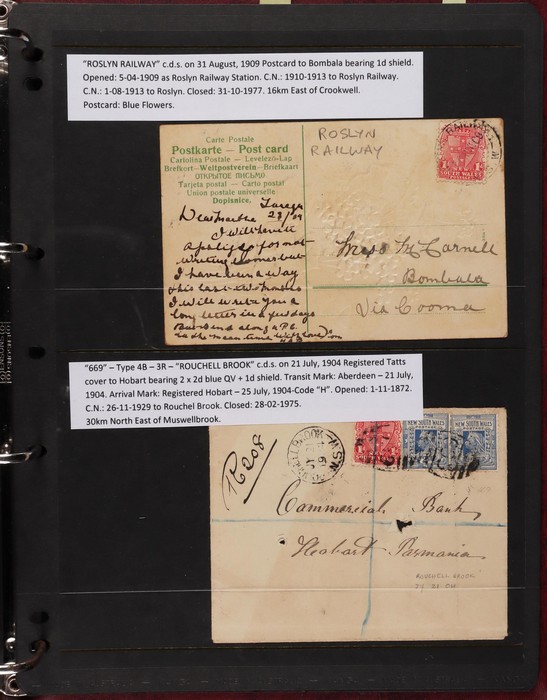 "ROSLYN RAILWAY" c.d.s. on 31 August, 1909 Postcard to Bombala bearing 1d shield.
Opened: 5-04-1909 as Roslyn Railway Station. C.N.: 1910-1913 to Roslyn Railway.
C.N.: 1-08-1913 to Roslyn. Closed: 31-10-1977. 16km East of Crookwell.
Postcard: Blue Flowers.
ROSLYN
RAILWAY
Carte Postale
Postkarte — Post card
Cartolina Postale — Levelező-Lap
Brefkort—Weltpostverein—Briefkaart
ОТКРЫТОЕ ПИСЬМО
Tarjeta postal — Carto postal
Union postale universelle
Dopisnice.
SOUTH WALES
28/09
I will write
apologise for not
writing sooner but
I have been away
this last two months
I will write you a
long letter in a few days
Miss McCarnell
Bombala
Via Cooma
"669" – Type 4B – 3R – "ROUCHELL BROOK" c.d.s. on 21 July, 1904 Registered Tatts
cover to Hobart bearing 2 x 2d blue QV + 1d shield. Transit Mark: Aberdeen – 21 July,
1904. Arrival Mark: Registered Hobart – 25 July, 1904-Code "H". Opened: 1-11-1872.
C.N.: 26-11-1929 to Rouchel Brook. Closed: 28-02-1975.
30km North East of Muswellbrook.
NEW SOUTH WALES
NEW SOUTH WALES
ROUCHELL BROOK N.S.W
R208
Commercial Bank
Hobart Tasmania
ROUCHELL BROOK
JY 21 04